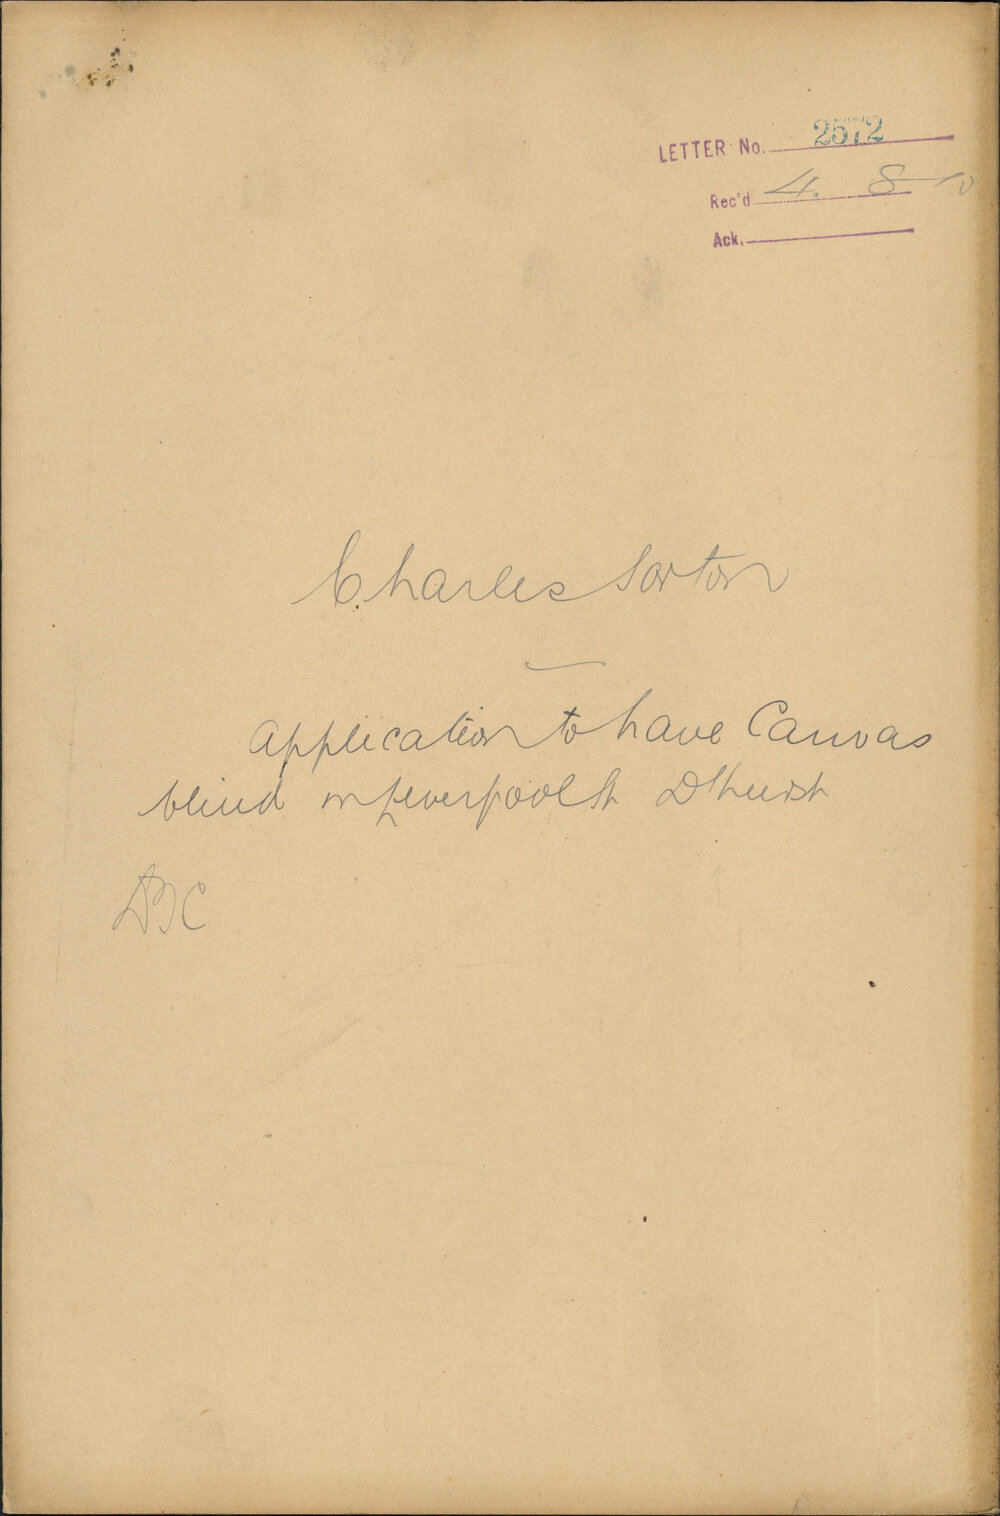 LETTER No. 2572
Rec'd 4. 8 10
Ack.
Charles Sorton
Application to have Canvas
blind in Liverpool St D'hurst